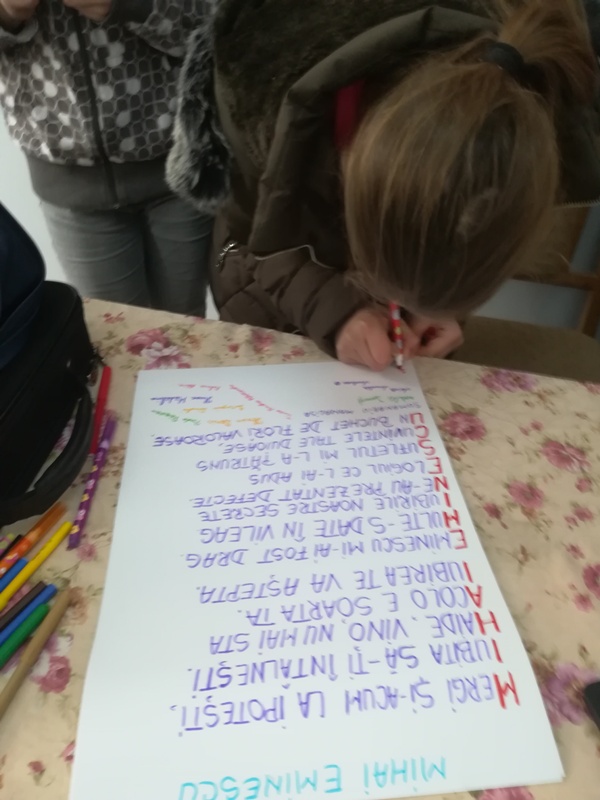 MIHAI EMINESCU
MERGI ȘI-ACUM LA IPOTEȘTI,
IUBITA SĂ-ȚI ÎNTÂLNEȘTI.
HAIDE, VINO, NU MAI STA
ACOLO E SOARTA TA.
IUBIREA TE VA AȘTEPTA.
EMINESCU MI-AI FOST DRAG.
MULTE-S DATE ÎN VILEAG
IUBIRILE NOASTRE SECRETE
NE-AU PREZENTAT DEFECTE.
ELOGIUL CE L-AI ADUS
SUFLETUL MI L-A PĂTRUNS
CUVINTELE TALE DUIOASE,
UN BUCHET DE FLORI VALOROASE.